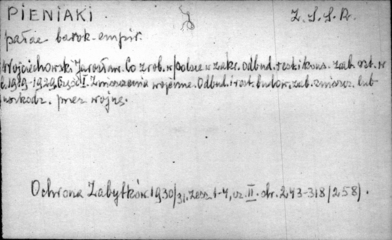 PIENIAKI Z.S.S.R.
pałac barok-empir.
Wojciechowski Jarosław. Co zrob. w Polsce w zakr. odbud. i rekonst. zab. szt. w
l. 1919-1929. Część I. Zniszczenia wojenne. Odbud. i rest. budow. zab. zniszcz. lub
uszkodz. przez wojnę.
Ochrona Zabytków 1930/31. zesz. 1-4, cz. II. str. 243-318 (258).